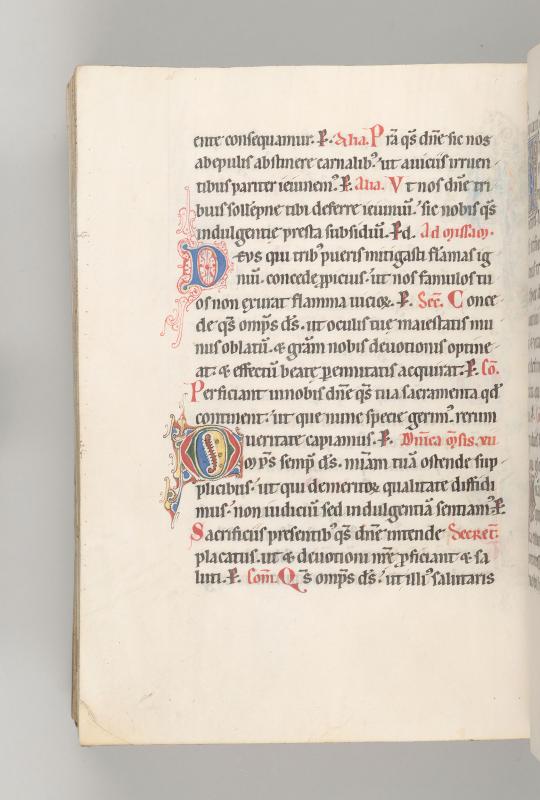 ente consequamur. P. Alia. P rā qs̄ dn̄e sic nos
ab epulis abstinere carnalibꝰ. ut a uiciis irruen
tibus pariter ieiunem̄ꝰ. P. Alia. V t nos dn̄e tri
buis sollēpne tibi deferre ieiuniū. sic nobis qs̄
indulgentie presta subsidiū. P d. Ad missam.
D eus qui tribꝰ pueris mitigasti flāmas ig
niū. concede ꝓpicius. ut nos famulos tu
os non exurat flamma uicioꝝ. P. Secr̄. C once
de qs̄ omp̄s ds̄. ut oculis tue maiestatis mu
nus oblatū. & grām nobis deuotionis optine
at. & effectū beate ꝑennitatis acquirat. P. Cō.
P erficiant in nobis dn̄e qs̄ tua sacramenta qd̄
continent. ut que nunc specie gerimꝰ. rerum
ueritate capiamus. P. Dn̄ica
O mp̄s semp̄ ds̄. mīam tuā ostende sup
plicibus. ut qui de meritoꝝ qualitate diffidi
mus. non iudiciū sed indulgentiā sentiamꝰ. P.
S acrificiis presentibꝰ qs̄ dn̄e intende Secret̄.
placatus. ut & deuotioni nr̄e ꝓficiant & sa
luti. P. Com̄. Q s̄ omp̄s ds̄. ut illiꝰ salutaris